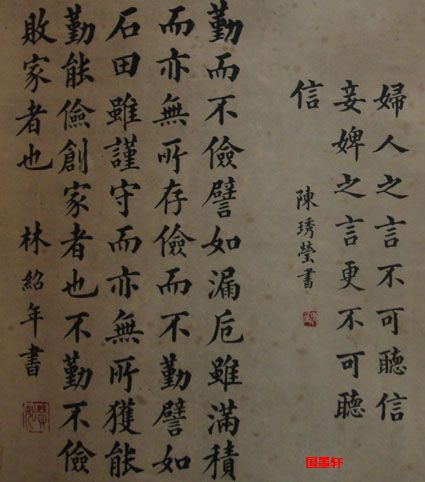 婦人之言不可聽信
妾婢之言更不可聽
信
陳琇瑩書
勤而不儉譬如漏卮雖滿積
而亦無所存儉而不勤譬如
石田雖謹守而亦無所獲能
勤能儉創家者也不勤不儉
敗家者也
林紹年書
国墨轩